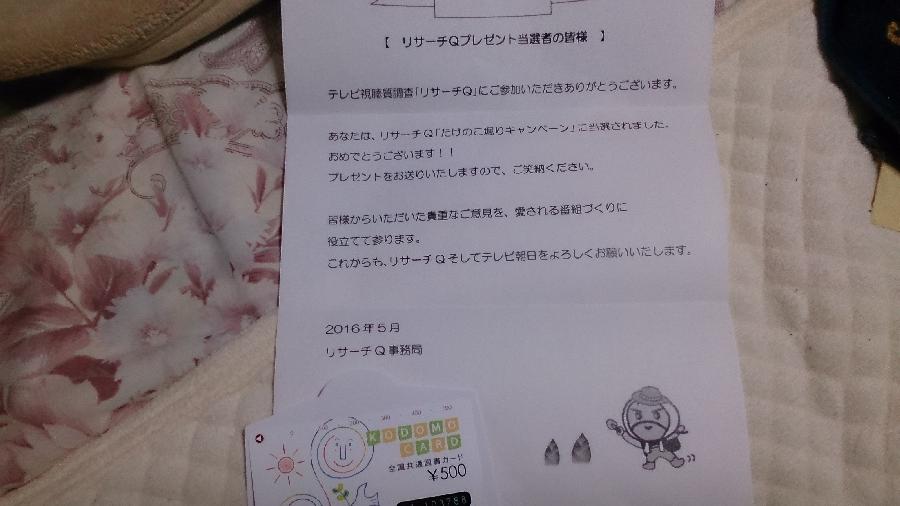 【 リサーチQプレゼント当選者の皆様 】
テレビ視聴質調査「リサーチQ」にご参加いただきありがとうございます。
あなたは、リサーチQ「たけのこ掘りキャンペーン」に当選されました。
おめでとうございます！！
プレゼントをお送りいたしますので、ご笑納ください。
皆様からいただいた貴重なご意見を、愛される番組づくりに
役立てて参ります。
これからも、リサーチQそしてテレビ朝日をよろしくお願いいたします。
2016年5月
リサーチQ事務局
300 400 500
KODOMO
CARD
全国共通図書カード
¥500